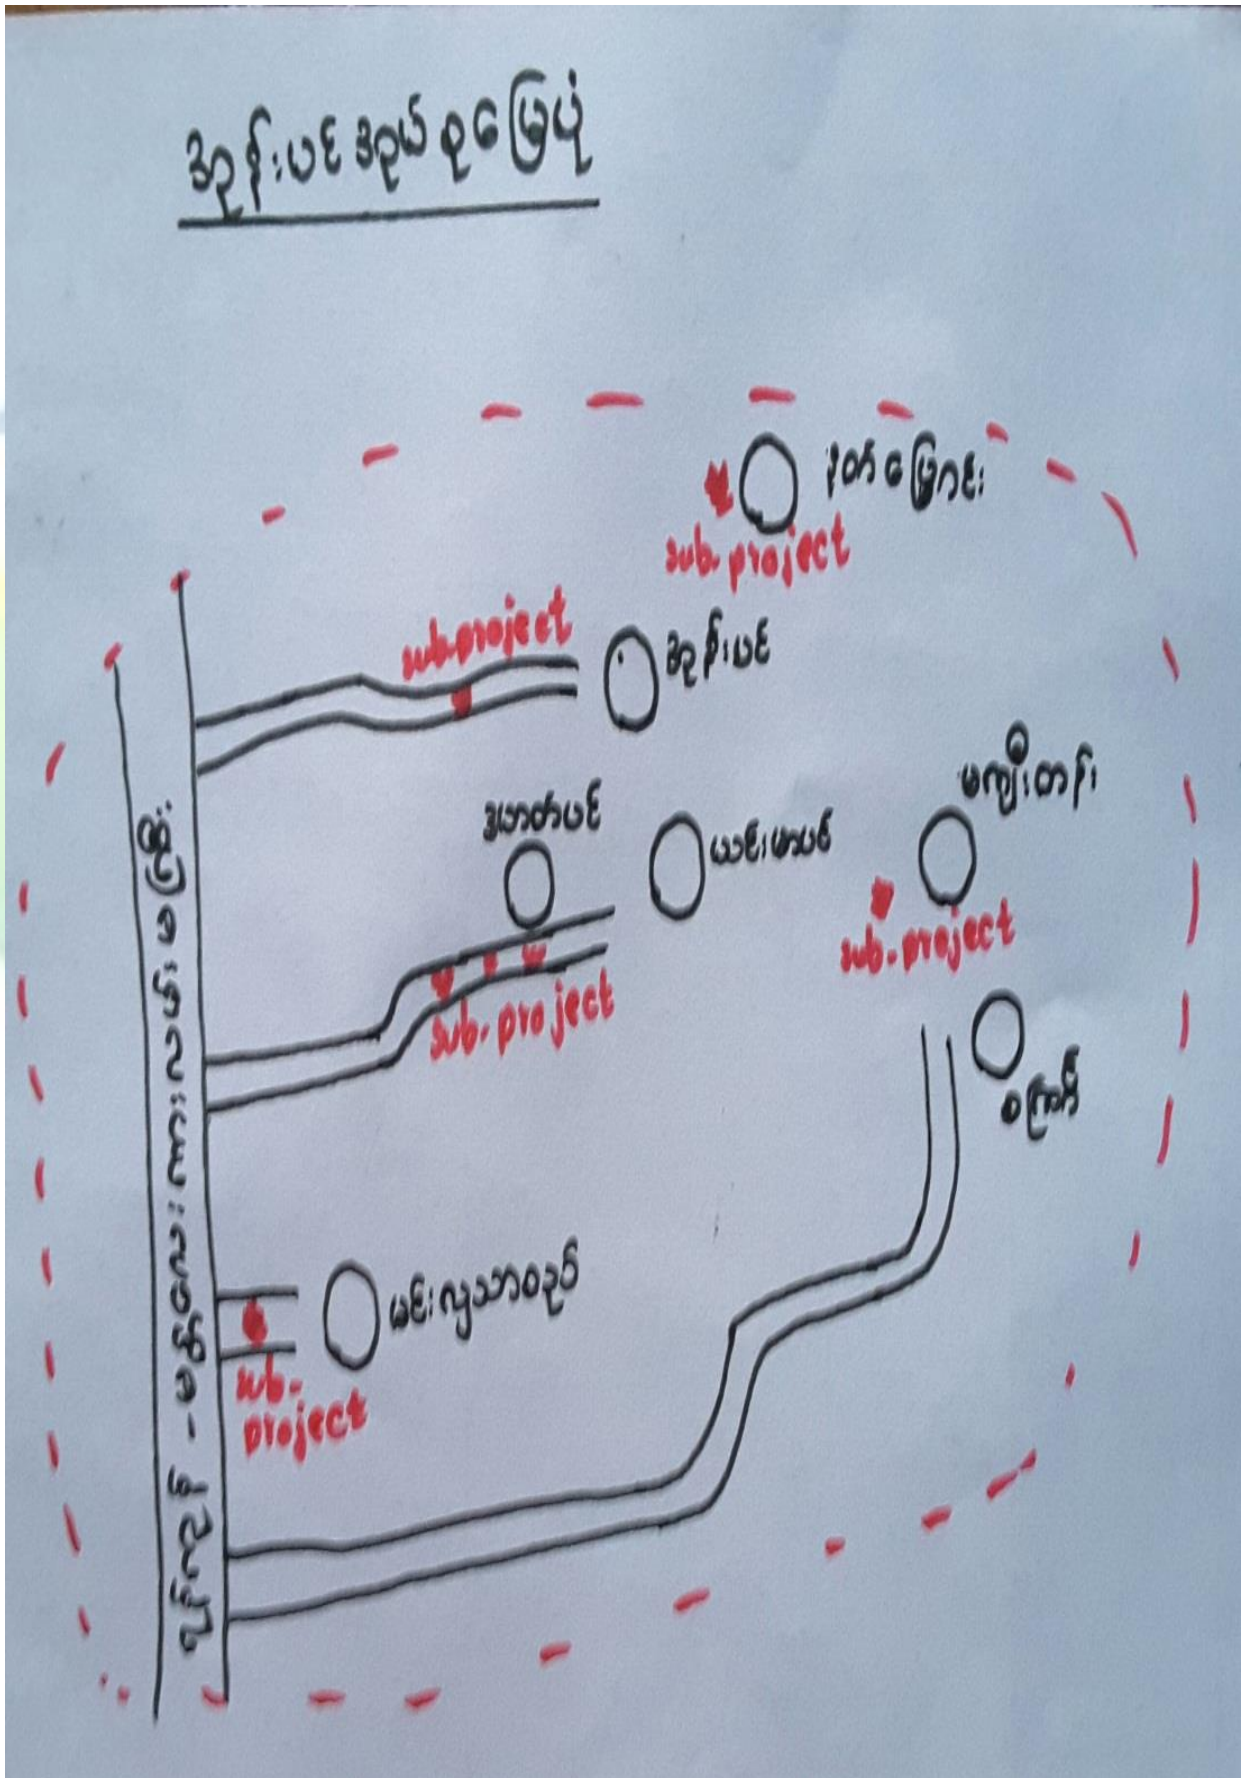 အုန်းပင်အုပ်စုမြေပုံ
နတ်မြေကင်း
sub-project
sub-project
အုန်းပင်
မကျီးတန်း
ဒဟတ်ပင်
ယင်းမာပင်
sub-project
sub-project
စကြာဂီ
မင်းလှသာစည်
sub-
project